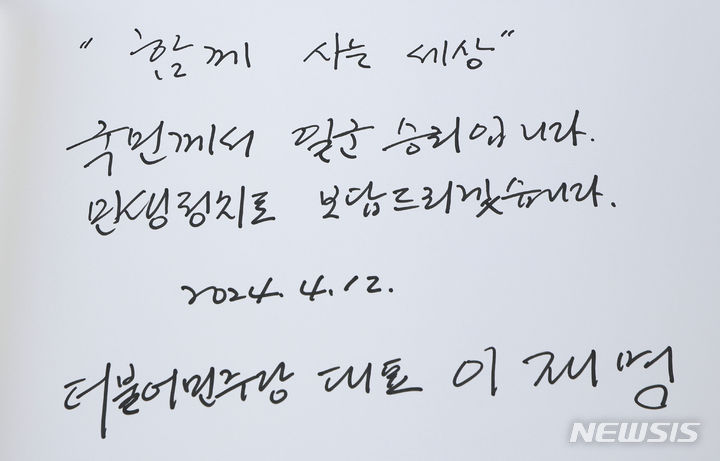 "함께 사는 세상"
국민께서 일군 승리입니다.
민생정치로 보답드리겠습니다.
2024. 4. 12.
더불어민주당 대표 이재명
NEWSIS